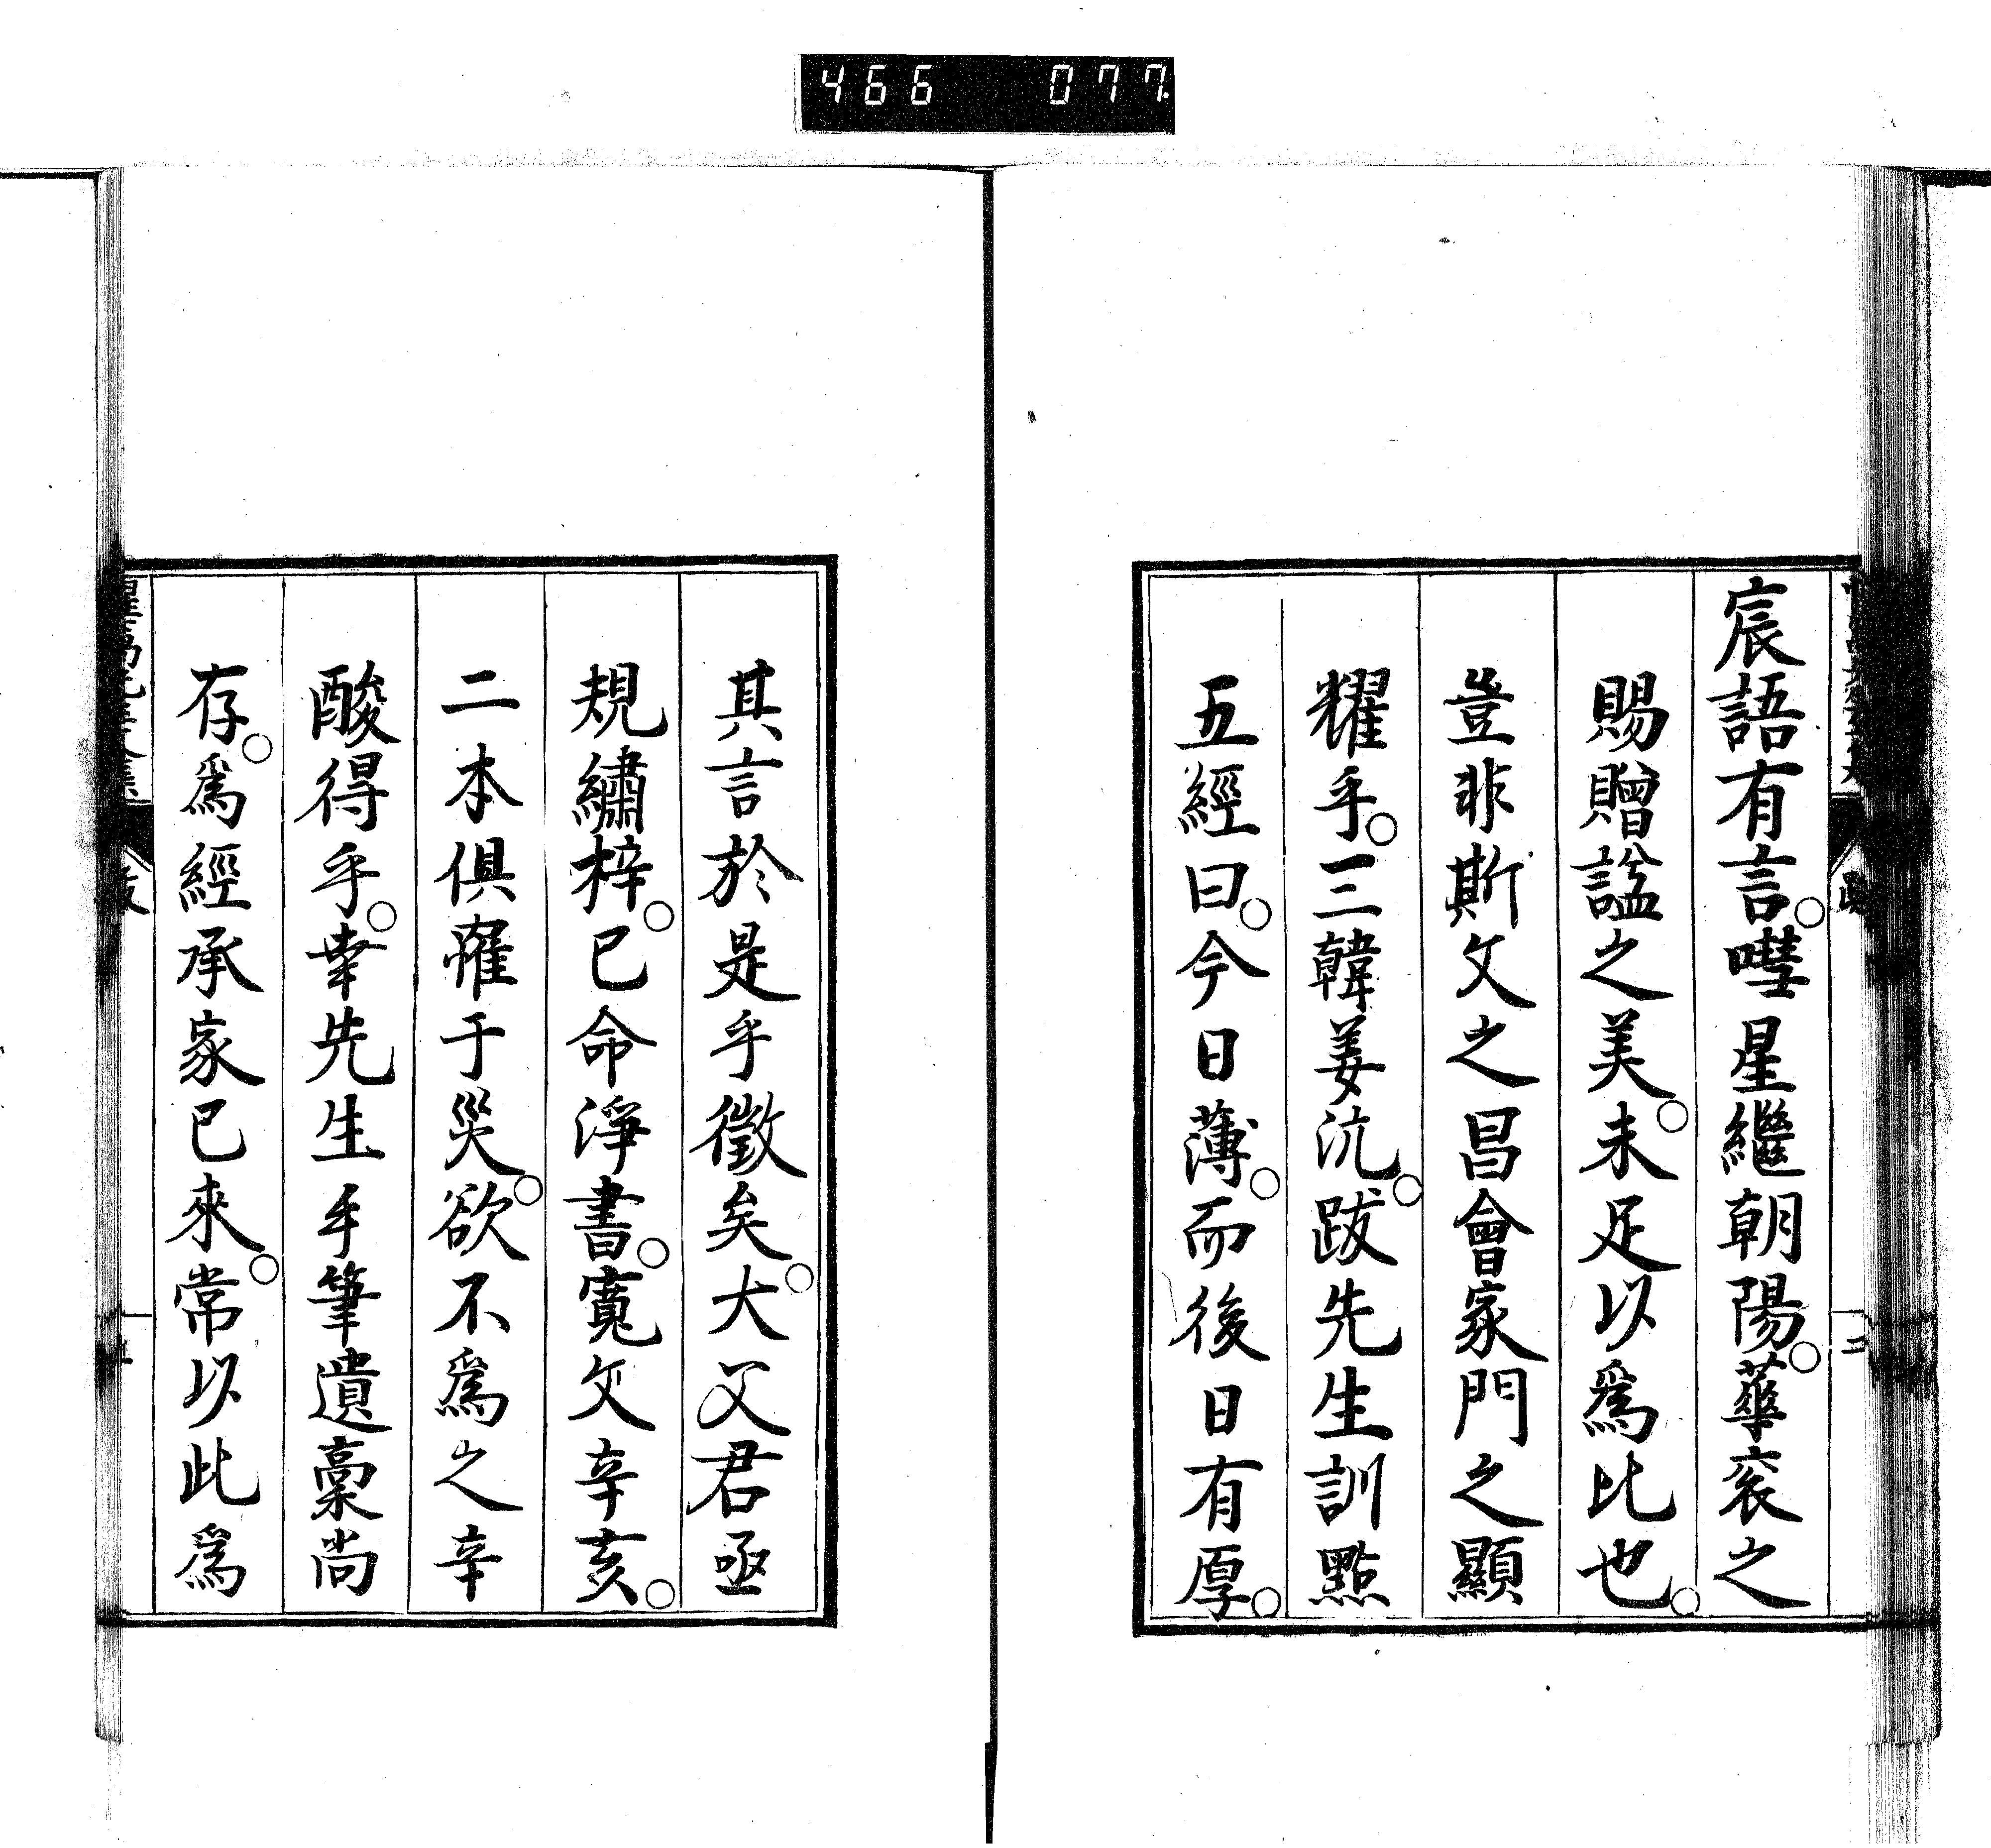 466 077.
宸語有言。嘒星繼朝陽。華袞之
賜贈諡之美。未足以爲比也。
豈非斯文之昌會家門之顯
耀乎。三韓姜沆。跋先生訓點
五經曰。今日薄。而後日有厚。
其言於是乎徵矣。大父君亟
規繡梓。已命淨書。寬文辛亥。
二本俱罹于災。欲不爲之辛
酸得乎。幸先生手筆遺稾尚
存。爲經承家已來。常以此爲